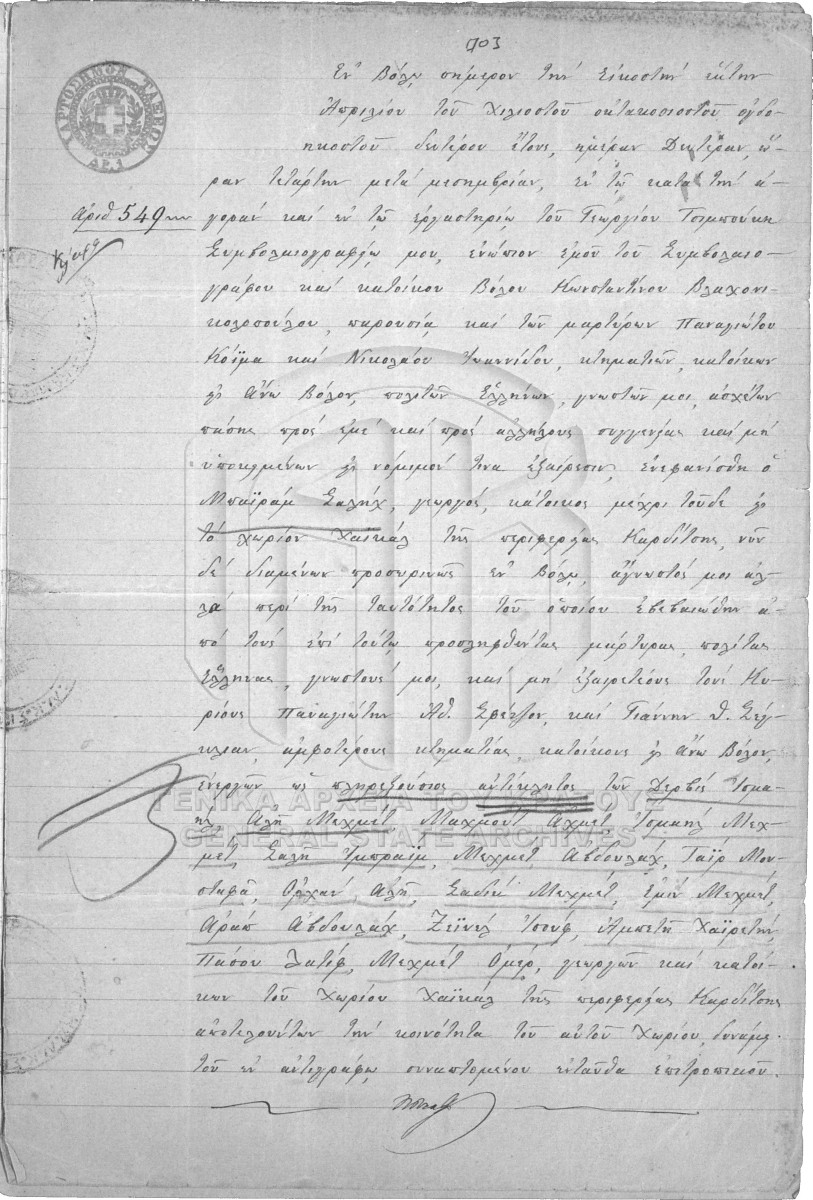 703
ΧΑΡΤΟΣΗΜΟΝ ΤΑΞΕΩΣ
ΑΡ. 1
Ἐν Βόλῳ σήμερον τὴν εἰκοστὴν ἕκτην
Ἀπριλίου τοῦ χιλιοστοῦ ὀκτακοσιοστοῦ ὀγδο-
ηκοστοῦ δευτέρου ἔτους, ἡμέραν Δευτέραν, ὥ-
ραν τετάρτην μετὰ μεσημβρίαν, ἐν τῷ κατὰ τὴν ἀ-
Ἀριθ 549
γορὰν καὶ ἐν τῷ ἐργαστηρίῳ τοῦ Γεωργίου Τσιμπούκη
Συμβολαιογραφείῳ μου, ἐνώπιον ἐμοῦ τοῦ Συμβολαιο-
γράφου καὶ κατοίκου Βόλου Κωνσταντίνου Βλαχονι-
κολοπούλου, παρουσίᾳ καὶ τῶν μαρτύρων Παναγιώτου
Κοΐμα καὶ Νικολάου Ἰωαννίδου, κτηματιῶν, κατοίκων
εἰς Ἄνω Βόλον, πολιτῶν Ἑλλήνων, γνωστῶν μοι, ἀσχέτων
πάσης πρὸς ἐμὲ καὶ πρὸς ἀλλήλους συγγενείας καὶ μὴ
ὑποκειμένων εἰς νόμιμόν τινα ἐξαίρεσιν, ἐνεφανίσθη ὁ
Μπαϊρὰμ Σαλὴχ, γεωργός, κάτοικος μέχρι τοῦδε εἰς
τὸ χωρίον Χαϊκὰλ τῆς περιφερείας Καρδίτσης, νῦν
δὲ διαμένων προσωρινῶς ἐν Βόλῳ, ἄγνωστός μοι ἀλ-
λὰ περὶ τῆς ταυτότητος τοῦ ὁποίου ἐβεβαιώθην ἀ-
πὸ τοὺς ἐπὶ τούτῳ προσληφθέντας μάρτυρας, πολίτας
Ἕλληνας, γνωστούς μοι, καὶ μὴ ἐξαιρετέους τοὺς Κυ-
ρίους Παναγιώτην Ἀθ. καὶ Γιάννην Θ.
ἀμφοτέρους κτηματίας, κατοίκους εἰς Ἄνω Βόλον,
ἐνεργῶν ὡς πληρεξούσιος ἀντίκλητος τῶν Δερβὶς Ἰσμα-
ὴλ, Ἀλῆ Μεχμέτ, Μαχμοὺτ Ἀχμέτ, Ἰσμαὴλ Μεχ-
μέτ, Σαλῆ Ἰμπραΐμ, Μεχμὲτ Ἀβδουλὰχ, Ταΐρ Μου-
σταφᾶ, Ὀρχὰν Ἀλῆ, Σαδὶκ Μεχμέτ, Ἐμὶν Μεχμέτ,
Ἀρὰπ Ἀβδουλὰχ, Ζεϊνὲλ Ἰσούφ, Ἀμπετῆ Χαϊρετὴν,
Πάσου Λατίφ, Μεχμὲτ Ὀμέρ, γεωργῶν καὶ κατοί-
κων τοῦ Χωρίου Χαϊκὰλ τῆς περιφερείας Καρδίτσης
ἀποτελούντων τὴν κοινότητα τοῦ αὐτοῦ Χωρίου, δυνάμει
τοῦ ἐν ἀντιγράφῳ συναπτομένου ἐνταῦθα ἐπιτροπικοῦ.
ΓΕΝΙΚΑ ΑΡΧΕΙΑ ΤΟΥ ΚΡΑΤΟΥΣ
GENERAL STATE ARCHIVES